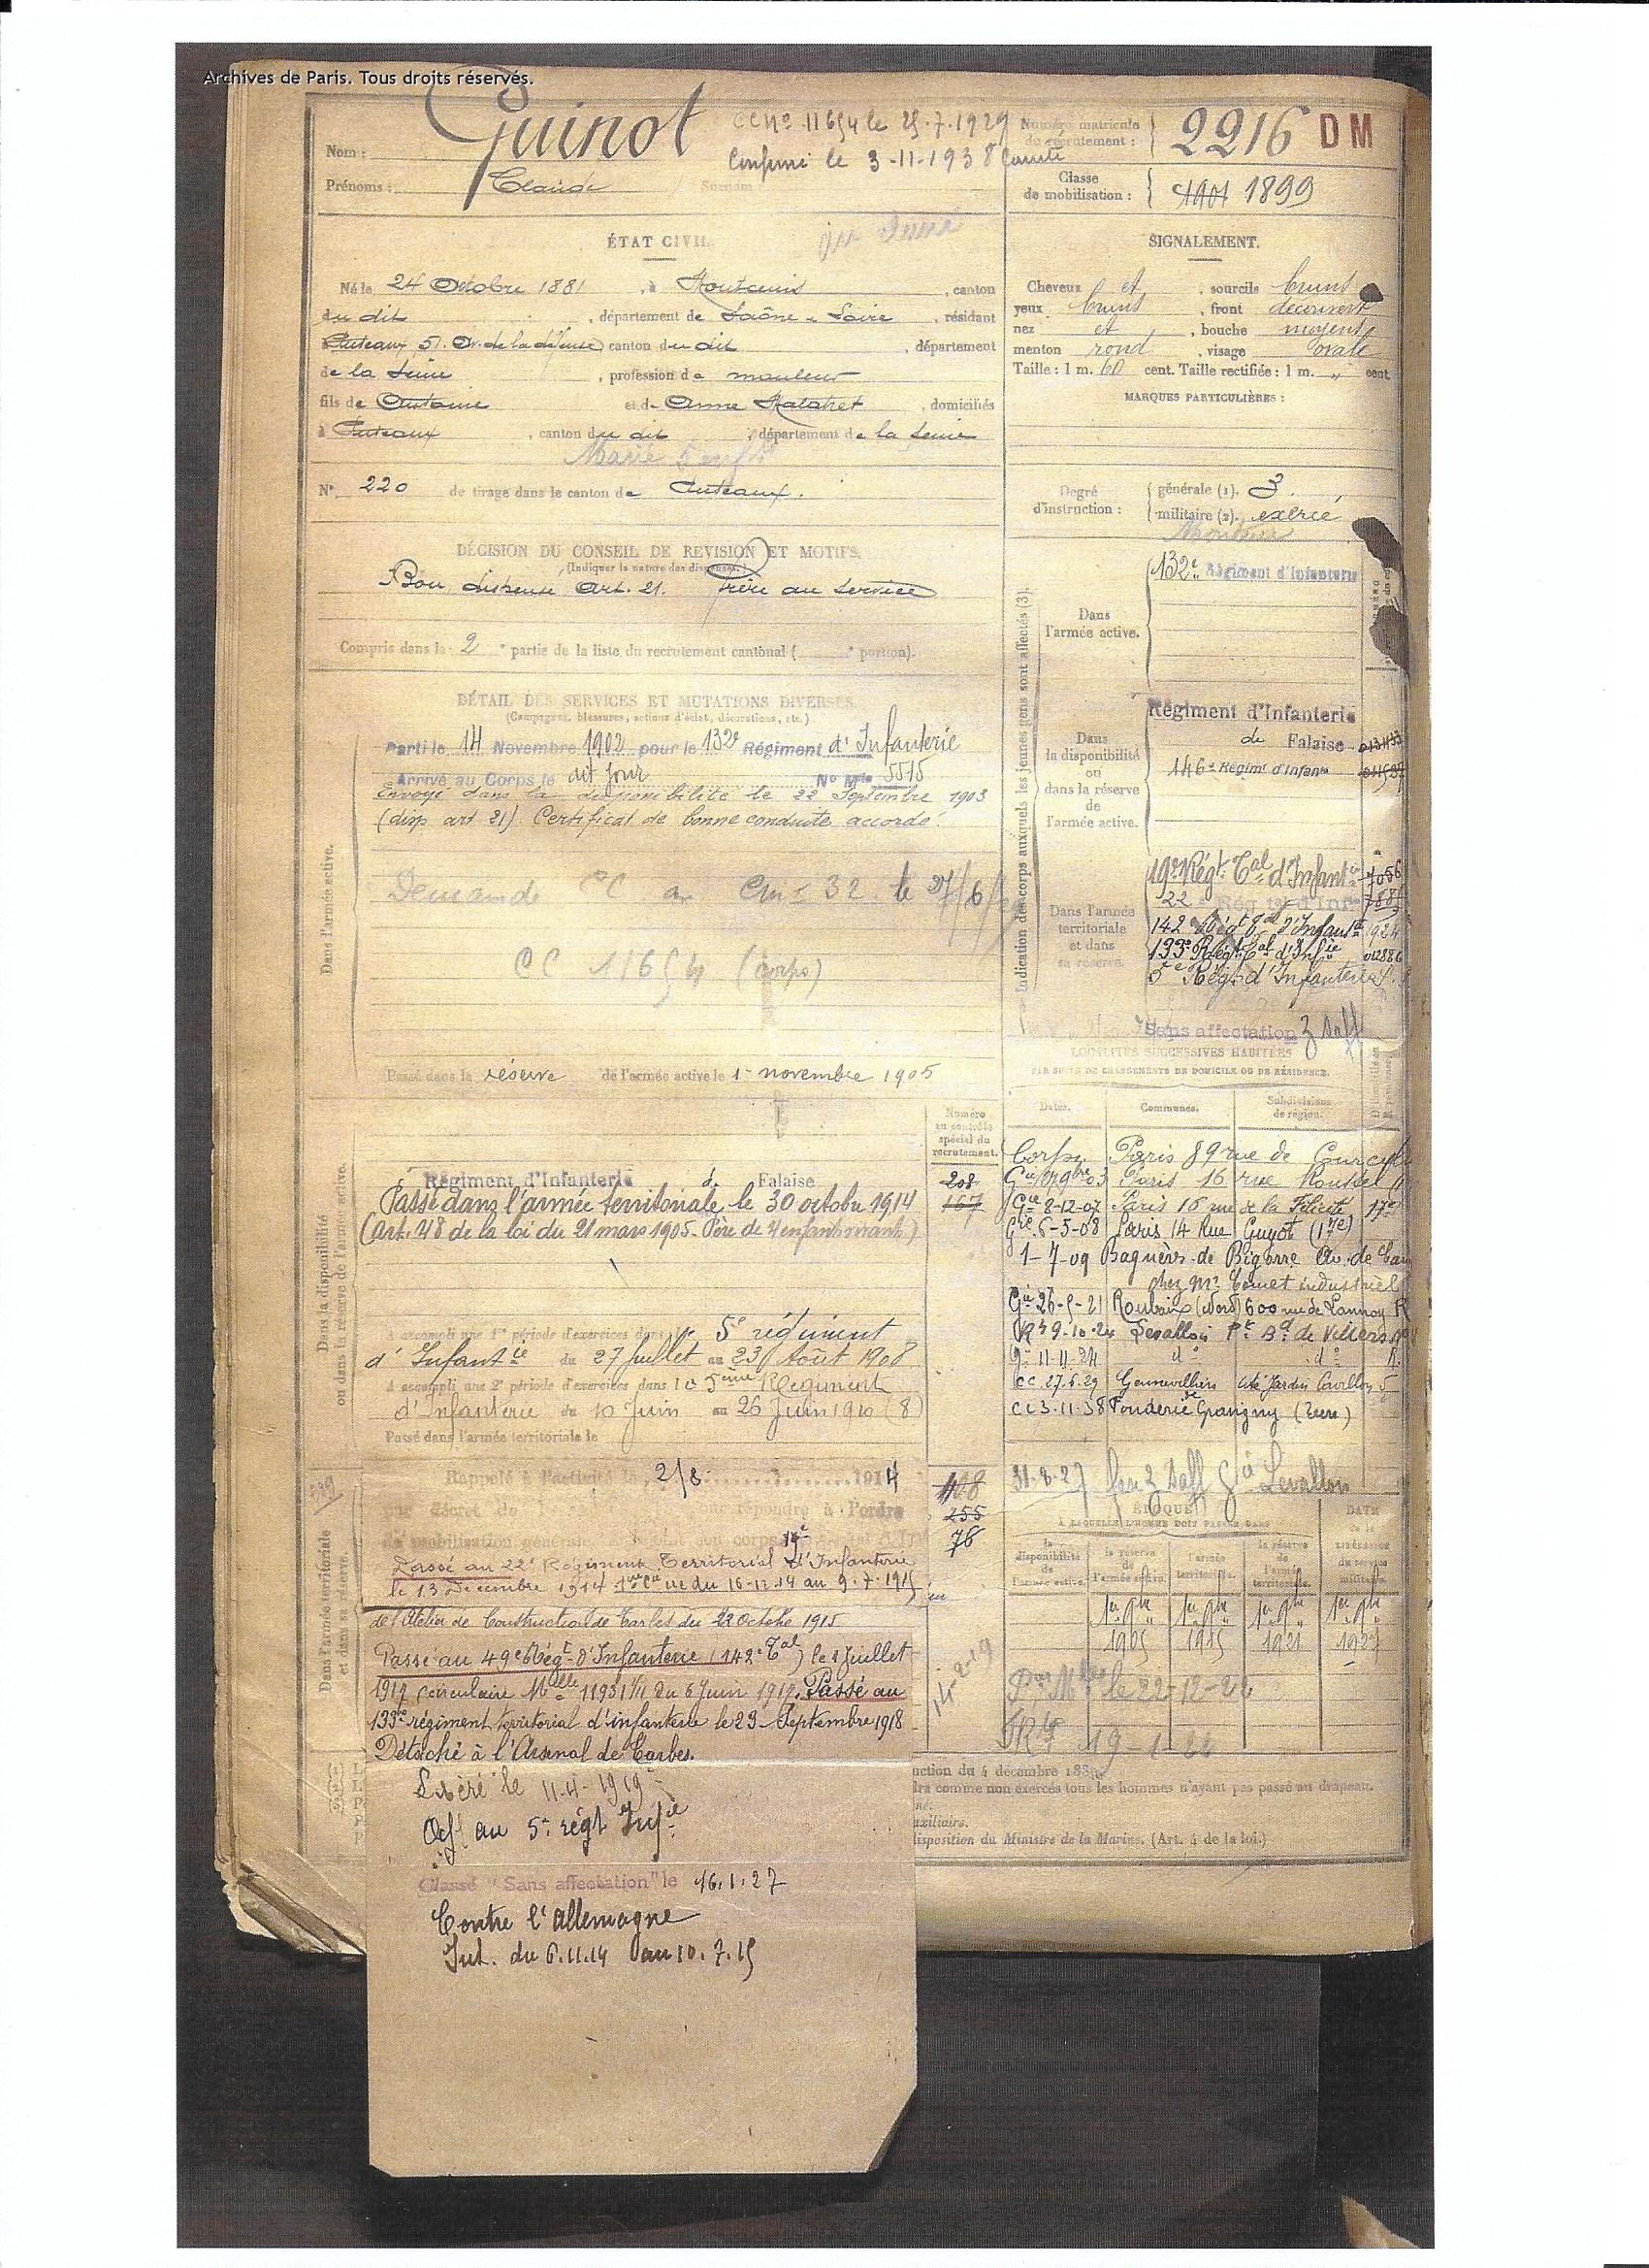 Archives de Paris. Tous droits réservés.
Nom : Guinot
CC No 11654 le 25.7.1929
Confirmé le 3-11-1938
Numéro matricule du recrutement : 2216 DM
Prénoms : Claude Surnom
Classe de mobilisation : 1901 1899
ÉTAT CIVIL.
Né le 24 Octobre 1881, à , canton
du dit, département de Saône & Loire, résidant
Puteaux, 51. Av. de la défense canton du dit, département
de la Seine, profession de mouleur
fils de Antoine et de Anne , domiciliés
à Puteaux, canton du dit, département de la Seine
Marié
N° 220 de tirage dans le canton de Puteaux.
SIGNALEMENT.
Cheveux et , sourcils bruns
yeux bruns, front découvert
nez et , bouche moyens
menton rond, visage ovale
Taille : 1 m. 60 cent. Taille rectifiée : 1 m. " cent.
MARQUES PARTICULIÈRES :
Degré d'instruction :
générale (1). 3.
militaire (2). exercé
DÉCISION DU CONSEIL DE REVISION ET MOTIFS.
(Indiquer la nature des dispenses.)
Bon dispensé Art. 21. frère au service
Compris dans la 2e partie de la liste du recrutement cantonal ( e portion).
DÉTAIL DES SERVICES ET MUTATIONS DIVERSES.
(Campagnes, blessures, actions d'éclat, décorations, etc.)
Dans l'armée active.
Parti le 14 Novembre 1902 pour le 132e Régiment d'Infanterie
Arrivé au Corps le dit jour No Mle 5515
Envoyé dans la disponibilité le 22 Septembre 1903
(disp art 21). Certificat de bonne conduite accordé.
Demande CC le 27/6/
CC 11654 (corps)
Passé dans la réserve de l'armée active le 1er novembre 1905
Indication des corps auxquels les jeunes gens sont affectés (3).
Dans l'armée active.
132e Régiment d'Infanterie
Dans la disponibilité ou dans la réserve de l'armée active.
Régiment d'Infanterie
de Falaise
146e Régimt d'Infanie
Dans l'armée territoriale et dans sa réserve.
19e Régt Tal d'Infantie 7056
22e Rég Tal d'Infie
142e Régt Tal d'Infantie 1924
133e Régt Tal d'Infie 012886
5e Rég. d'Infanterie
Sans affectation
LOCALITÉS SUCCESSIVES HABITÉES
PAR SUITE DE CHANGEMENTS DE DOMICILE OU DE RÉSIDENCE.
Numéro au contrôle spécial du recrutement.
Dates. Communes. Subdivisions de région.
Corps. Paris 89 rue de
208
Paris 16 rue
167
8-12-07 Paris 16 rue de la Félicité 17e
6-5-08 Paris 14 Rue Guyot (17e)
1-7-09 Bagnères-de Bigorre Av. de
chez Mr industriel
26-5-21 Roubaix (Nord) 600 rue de Lannoy R
9-10-24 Levallois Pt Bd de Villiers
11-11-24 do do
CC 27.6.29 Gennevilliers Cité Jardin 5
CC 3-11-38 Fonderie de Gravigny (Eure)
31-8-27 Levallois
Dans la disponibilité ou dans la réserve de l'armée active.
Régiment d'Infanterie d. Falaise
Passé dans l'armée territoriale le 30 octobre 1914
(Art. 48 de la loi du 21 mars 1905. Père de 4 enfants vivants)
A accompli une 1re période d'exercices dans le 5e régiment
d'Infantie du 27 Juillet au 23 Août 1908
A accompli une 2e période d'exercices dans le 5ème Régiment
d'Infanterie du 10 Juin au 26 Juin 1910 (8)
Passé dans l'armée territoriale le
Dans l'armée territoriale et dans sa réserve.
Rappelé à l'activité le 2/8 1914
par décret de pour répondre à l'ordre
de mobilisation générale
Passé au 22e Régiment Territorial d'Infanterie
le 13 Décembre 1914 du 16-12-14 au 9-7-1915
de l'Atelier de Construction de Tarbes du 22 octobre 1915
Passé au 49e Régt d'Infanterie (142e Tal) le 1 Juillet
1917 circulaire Mielle 11931 1/11 du 6 Juin 1917. Passé au
133e régiment territorial d'infanterie le 23 Septembre 1918
Détaché à l'Arsenal de Tarbes.
Libéré le
Aff au 5e régt Infie
Classé "Sans affectation" le 16.1.27
Contre l'Allemagne
Int. du 6.11.14 au 10.7.15
255
76
14-2-19
ÉPOQUE
À LAQUELLE L'HOMME DOIT PASSER DANS
la disponibilité de l'armée active.
la réserve de l'armée active.
l'armée territoriale.
la réserve de l'armée territoriale.
DATE de la libération du service militaire.
1905 1915 1921 1927
le 22-12-
uction du 4 décembre 188
dra comme non exercés tous les hommes n'ayant pas passé au drapeau.
uxiliaire.
disposition du Ministre de la Marine. (Art. 4 de la loi.)